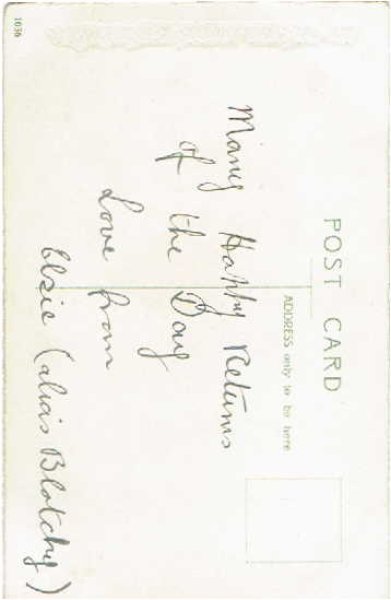 POST CARD
ADDRESS only to be here
Many Happy Returns
of the Day
Love from
Elsie (alias Blotchy)
1036